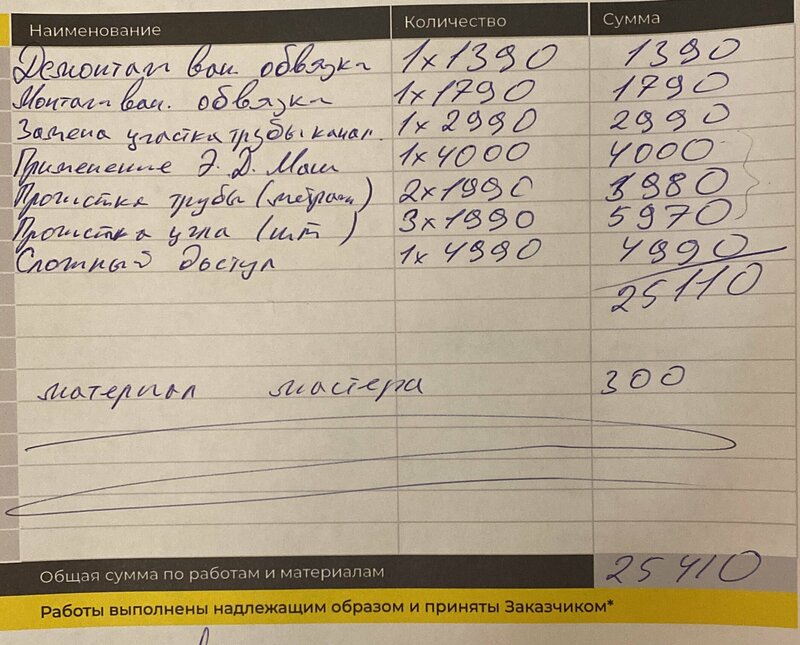 Наименование Количество Сумма
Демонтаж ван. обвязки 1х1390 1390
Монтаж ван. обвязки 1х1790 1790
Замена участка трубы канал. 1х2990 2990
Применение Э. Д. Маш 1х4000 4000
Прочистка трубы (метраж) 2х1990 3980
Прочистка угла (шт) 3х1990 5970
Сложный доступ 1х4990 4990
25110
материал мастера 300
Общая сумма по работам и материалам 25410
Работы выполнены надлежащим образом и приняты Заказчиком*